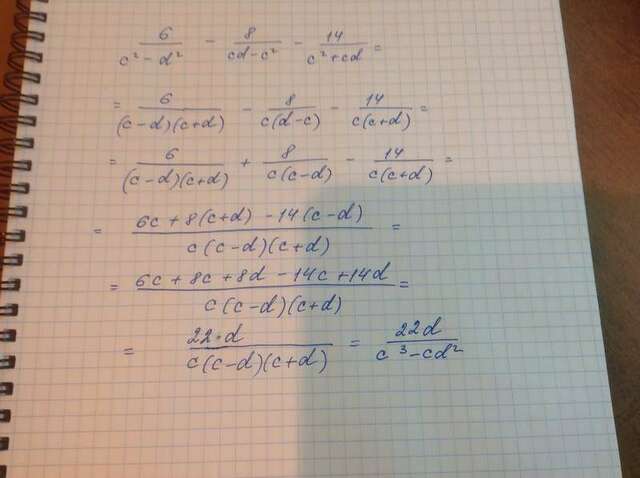 6/(c² - d²) - 8/(cd - c²) - 14/(c² + cd) =
= 6/((c-d)(c+d)) - 8/(c(d-c)) - 14/(c(c+d)) =
= 6/((c-d)(c+d)) + 8/(c(c-d)) - 14/(c(c+d)) =
= (6c + 8(c+d) - 14(c-d))/(c(c-d)(c+d)) =
= (6c + 8c + 8d - 14c + 14d)/(c(c-d)(c+d)) =
= 22·d/(c(c-d)(c+d)) = 22d/(c³ - cd²)